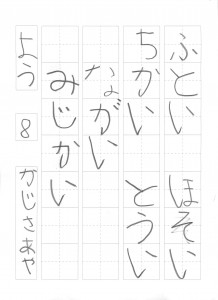 ふとい ほそい
ちかい とうい
ながい
みじかい
よう 8 かじさあや